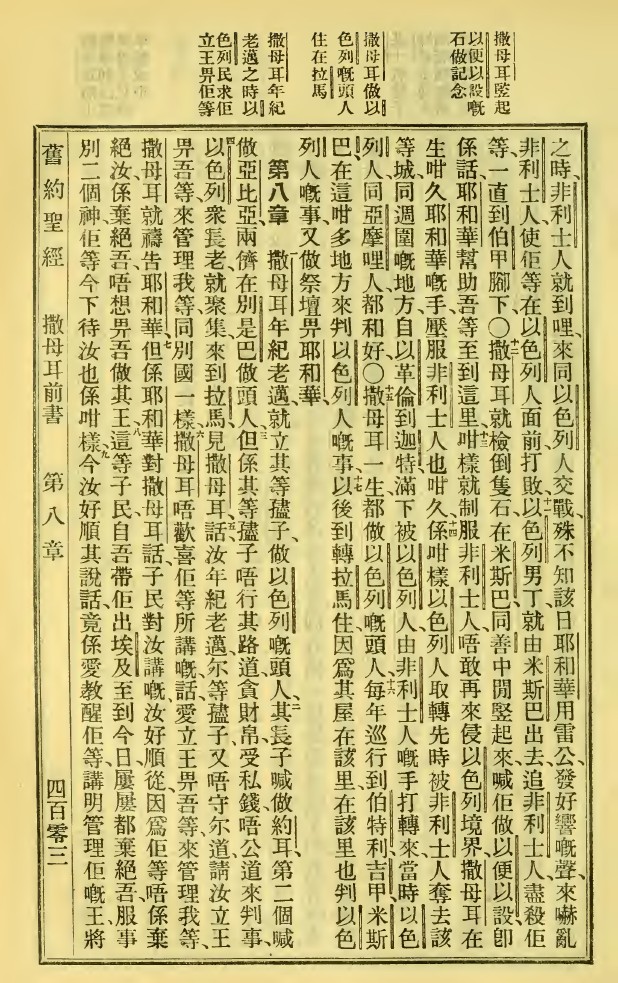 撒母耳竪起
以便以設嘅
石做記念
撒母耳做以
色列嘅頭人
住在拉馬
撒母耳年紀
老邁之時以
色列民求佢
立王畀佢等
之時、非利士人就到哩、來同以色列人交戰、殊不知該日耶和華用雷公、發好響嘅聲、來嚇亂
非利士人、使佢等在以色列人面前打敗、十一以色列男丁就由米斯巴出去、追非利士人、盡殺佢
等、一直到伯甲腳下、〇十二撒母耳就檢倒隻石、在米斯巴同善中間竪起來、喊佢做以便以設、卽
係話、耶和華幫助吾等至到這里、十三咁樣就制服非利士人、唔敢再來侵以色列境界、撒母耳在
生咁久、耶和華嘅手壓服非利士人也咁久、十四係咁樣以色列人取轉先時被非利士人奪去該
等城、同週圍嘅地方、自以革倫到迦特、滿下被以色列人由非利士人嘅手打轉來、當時以色
列人同亞摩哩人都和好、〇十五撒母耳一生都做以色列嘅頭人、十六每年巡行到伯特利吉甲米斯
巴、在這咁多地方來判以色列人嘅事、十七以後到轉拉馬住、因爲其屋在該里、在該里也判以色
列人嘅事、又做祭壇畀耶和華、
第八章 撒母耳年紀老邁、就立其等孻子、做以色列嘅頭人、二其長子喊做約耳、第二個喊
做亞比亞、兩儕在別是巴做頭人、三但係其等孻子唔行其路道、貪財帛、受私錢、唔公道來判事、
四以色列衆長老就聚集、來到拉馬見撒母耳、五話、汝年紀老邁、尔等孻子又唔守尔道、請汝立王
畀吾等、來管理我等、同別國一樣、六撒母耳唔歡喜佢等所講嘅話、愛立王畀吾等、來管理我等、
撒母耳就禱告耶和華、七但係耶和華對撒母耳話、子民對汝講嘅、汝好順從、因爲佢等唔係棄
絕汝、係棄絕吾、唔想畀吾做其王、八這等子民、自吾帶佢出埃及、至到今日、屢屢都棄絕吾、服事
別二個神、佢等今下待汝也係咁樣、九今汝好順其說話、竟係愛教醒佢等、講明管理佢嘅王、將
舊約聖經 撒母耳前書 第八章 四百零三